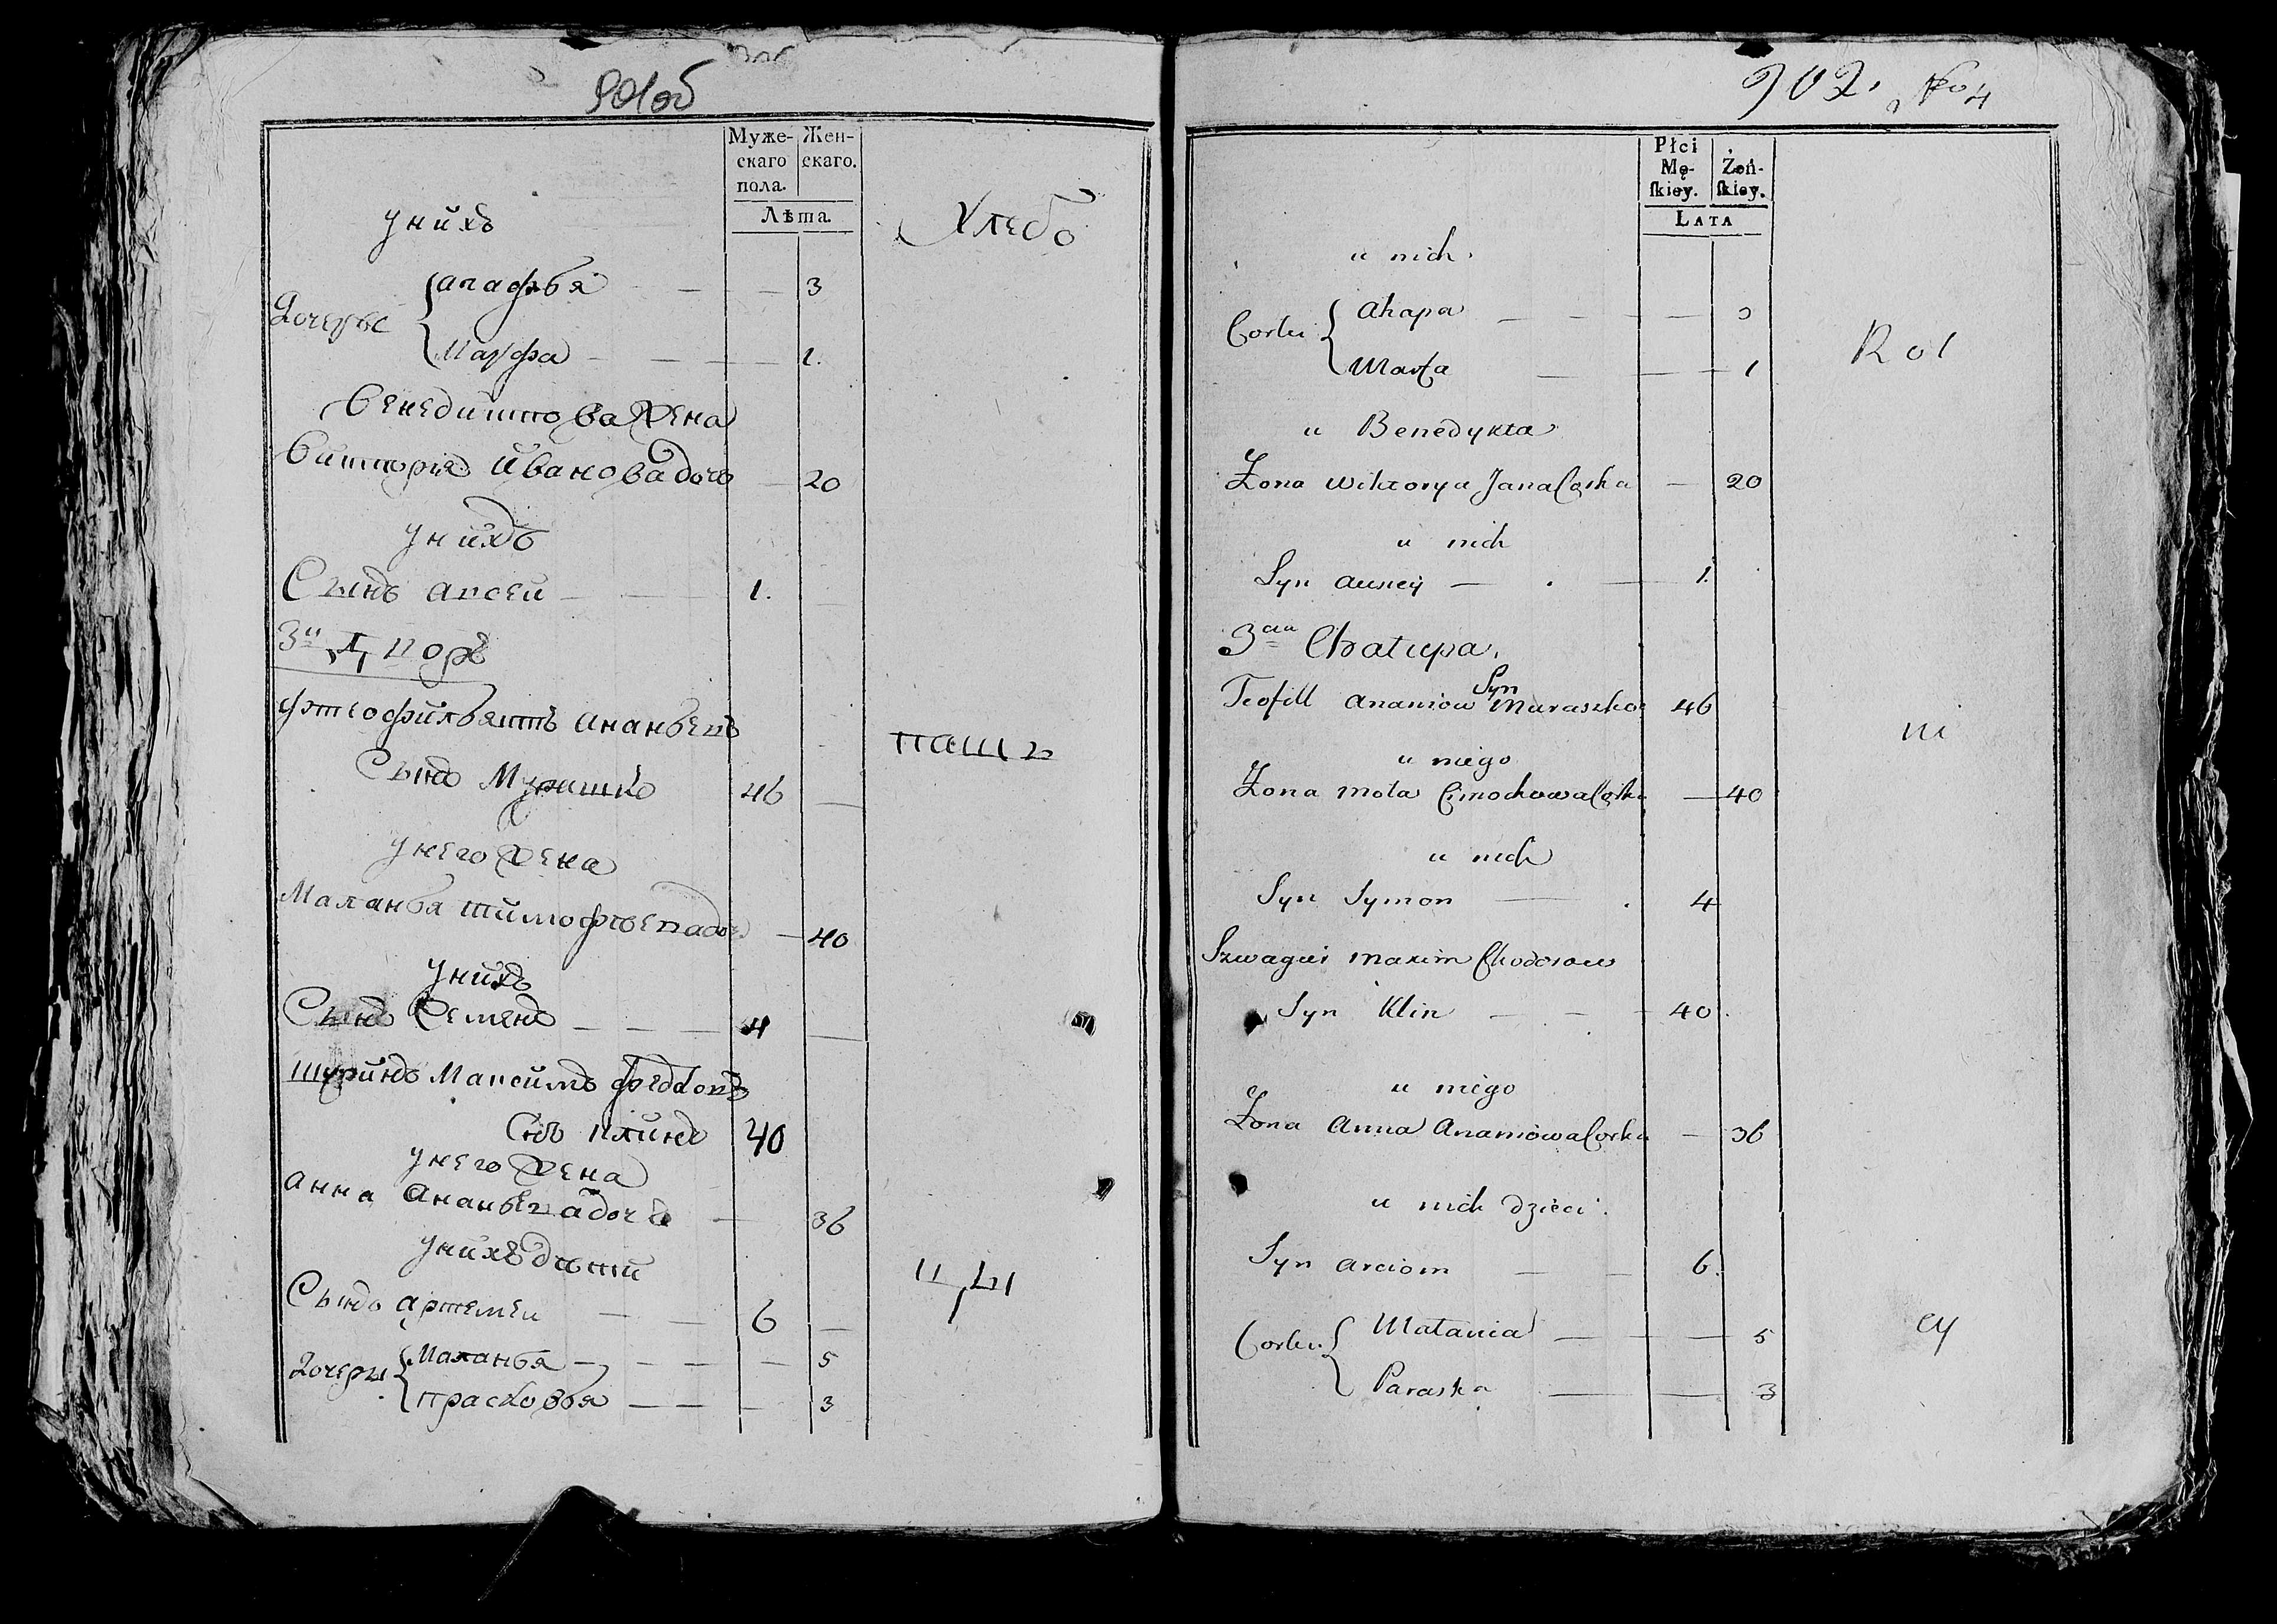 901об
Муже-
скаго
пола.
Жен-
скаго.
Лѣта.
у нихъ
Хлебо
Дочерье
агафья 3
Марфа 1.
Бенедиктова жена
Викторья Иванова дочь 20
у нихъ
Сынъ Авсей 1.
3й Дворъ
Ананьевъ
Сынъ Мурашко 46
паш
у него жена
Маланья Тимофѣева дочь 40
у нихъ
Сынъ Семенъ 4
Шуринъ Максимъ Федоровъ
Снъ Клинъ 40
у него жена
Анна Ананьева дочь 36
у нихъ дѣти
цы
Сынъ Артемеи 6
Дочери
Маланья 5
Прасковья 3
902. No 4
Płci
Mę-
skiey.
Żeń-
skiey.
LATA
u nich
Corki
Ahapa 3
Marta 1
Rol
u Benedykta
Żona Wiktorya Jana Corka 20
u nich
Syn Auxiey 1.
3cia Chałupa.
Teofill Ananiow Syn Muraszko 46
ni
u niego
Żona Mola Cimochowa Corka 40
u nich
Syn Symon 4
Szwagier Maxim Chodorow
Syn Klin 40
u niego
Żona Anna Ananiowa Corka 36
u nich dzieci
Syn Arciom 6.
Corki
Małania 5
Paraska 3
cy